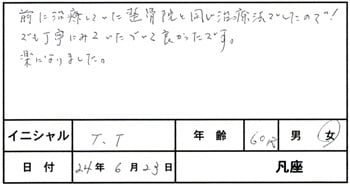 前に治療していた整骨院と同じ治療法でしたので!
でも丁寧にみていただいて良かったです。
楽になりました。
イニシャル T.T 年齢 60代 男 女
日付 24年6月23日 凡座